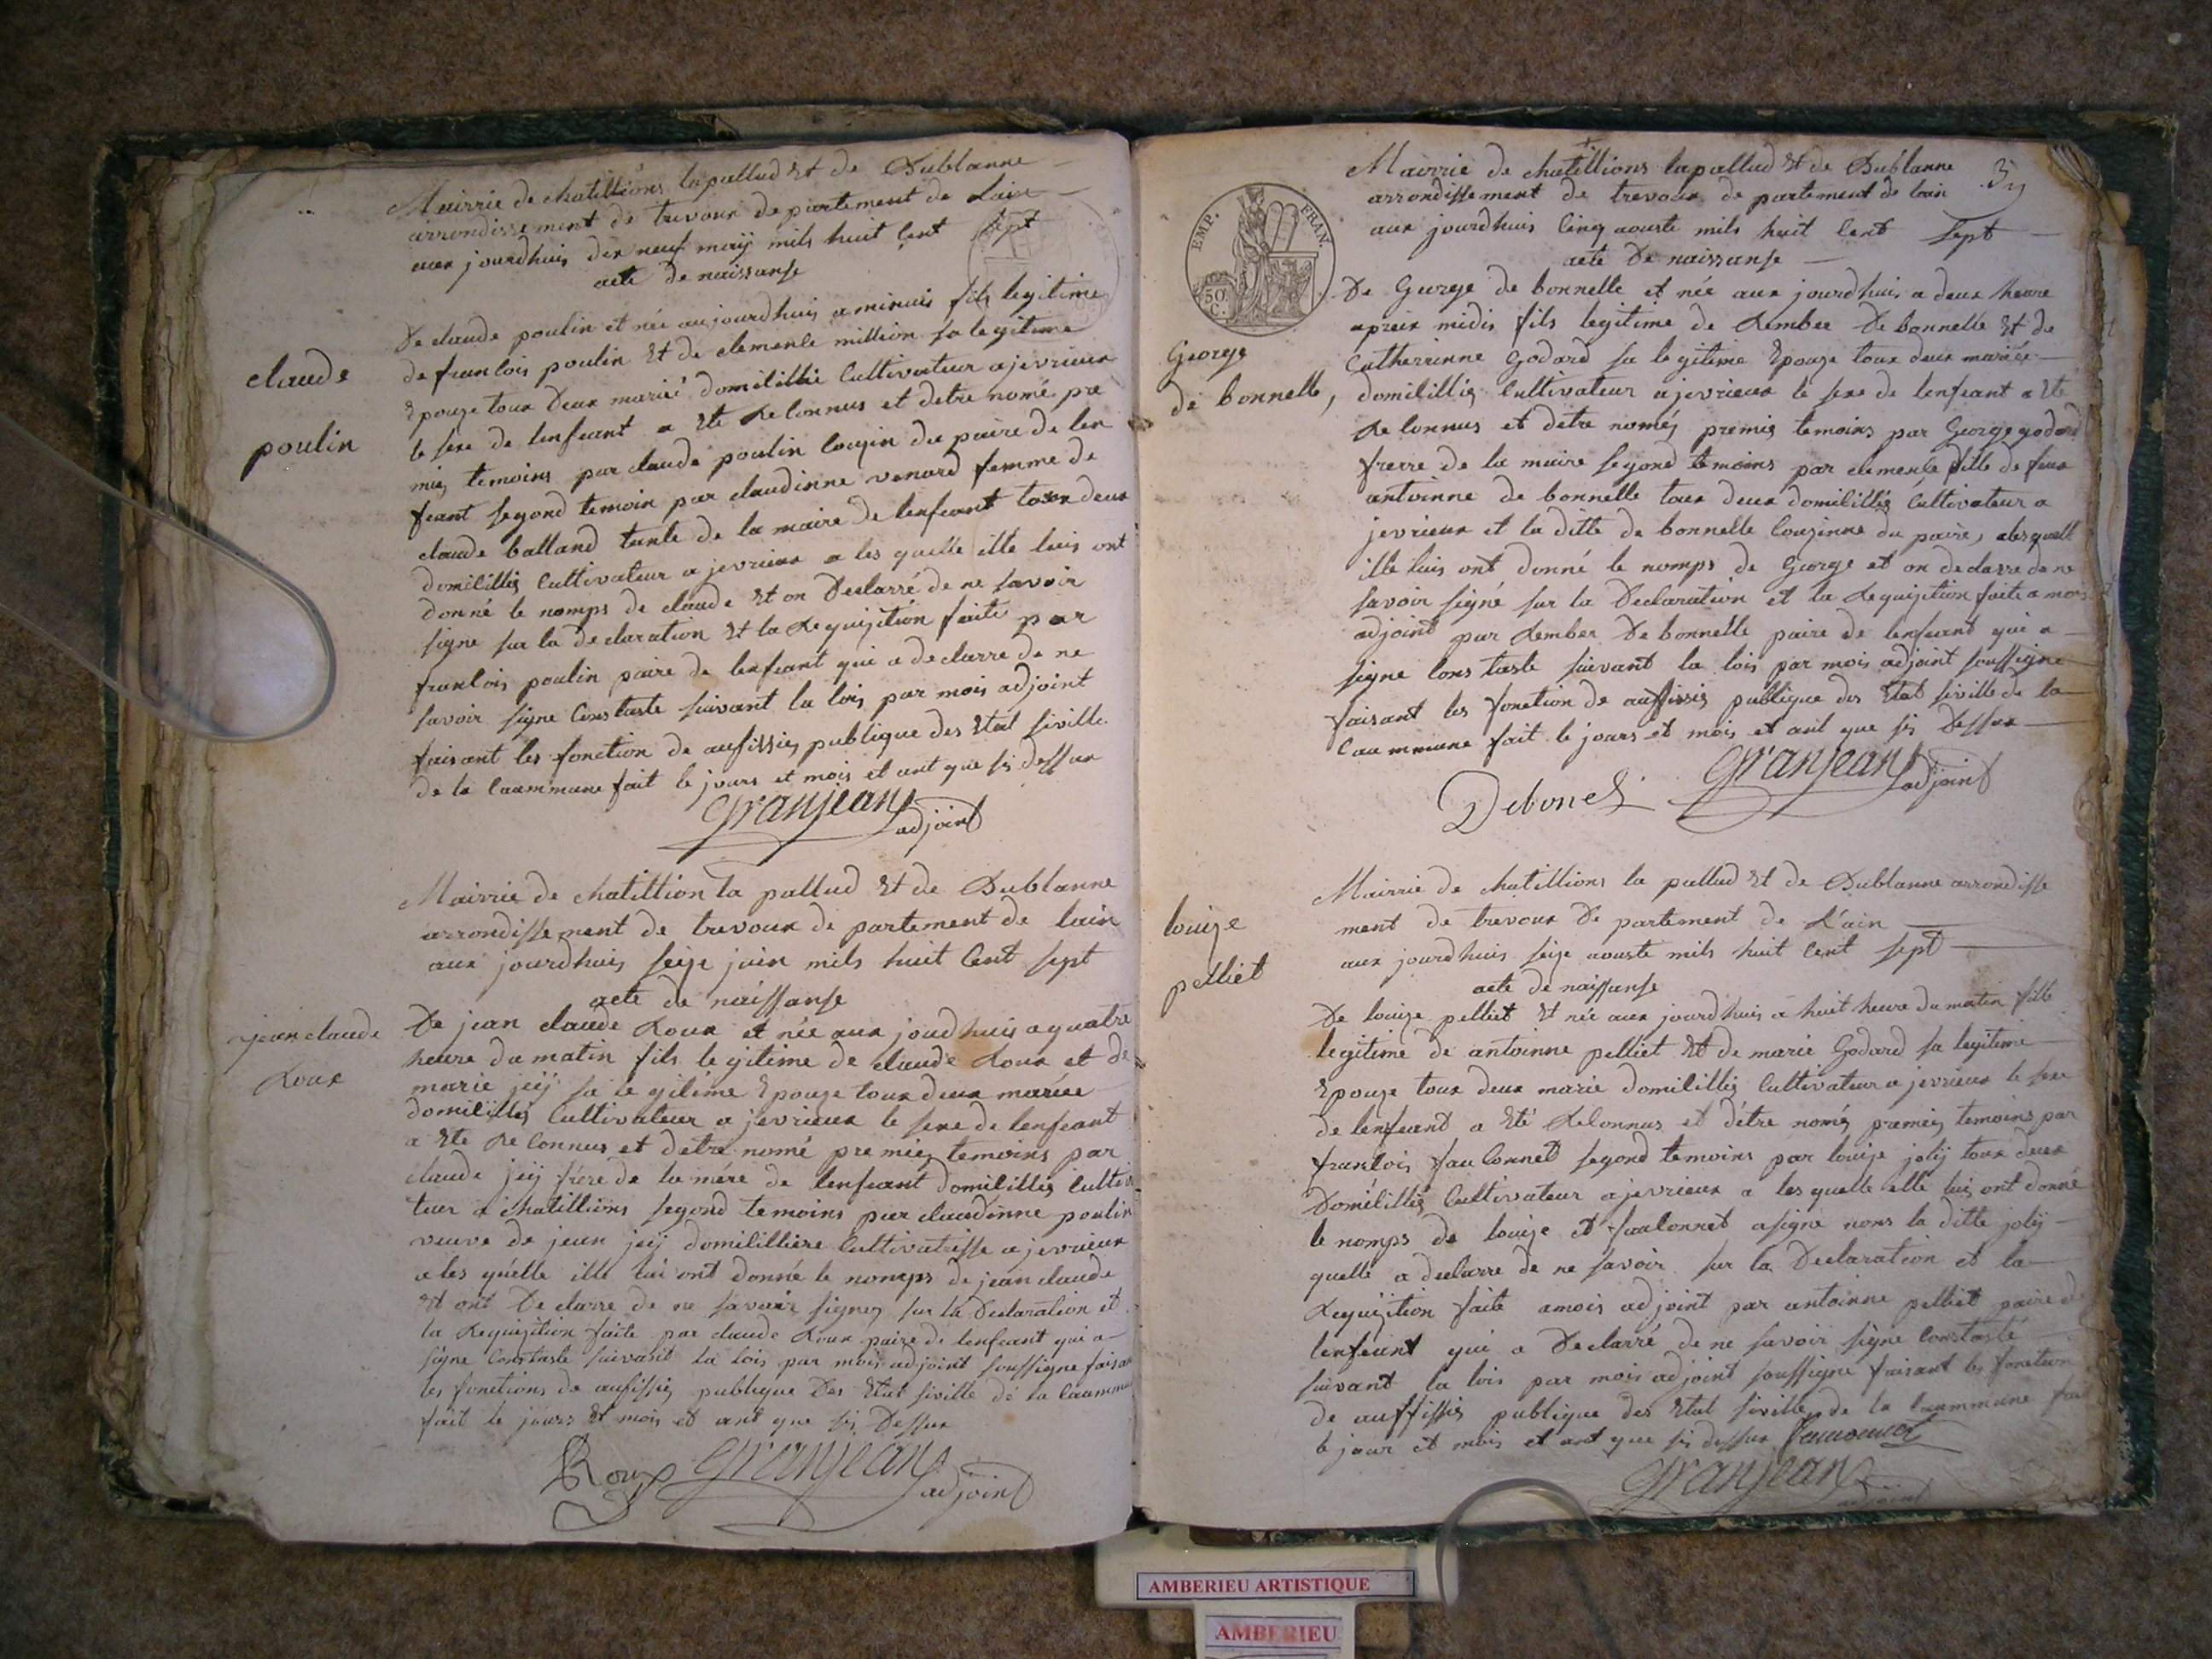 Mairrie de chatillions lapallud Et de Dublanne
arrondissement de trevoux de partement de Lain
aux jourdhuis dix neuf maÿ mils huit Cent sept
acte de naissanse
claude
poulin
De claude poulin et née aujourdhuis a minuis fils legitime
de franlois poulin Et de clemenle million sa legitime
Epouze toux Deux marié domilillié Cultivateur a jevrieux
le sexe de lenfeant a Ete Relonnus et detre nomé pre
mies temoins par claude poulin Couzin du paire de len
feant segond temoin par claudinne venard femme de
claude balland tante de la maire de lenfeant toux deux
domililliés Cultivateur a jevrieux a les quelle ille luis ont
donné le nomps de claude Et on Declarré de ne savoir
signe sur la declaration Et la Requizition faite par
franlois poulin paire de lenfeant qui a declarre de ne
savoir signe Constaste suivant la lois par mois adjoint
faisant les fonction de aufissies publique des Etat siville
de la Caummune fait le jours et mois et ant que sis dessux
Granjean
adjoint
Mairrie de chatillion la pallud Et de Dublanne
arrondissement de trevoux de partement de lain
aux jourdhuis seize juin mils huit Cent sept
acte de naissanse
jean claude
Roux
De jean claude Roux et née aux joudhuis a quatre
heure du matin fils legitime de claude Roux et de
marie jeÿ sa legitime Epouze toux deux mariée
domililliés Cultivateur a jevrieux le sexe de lenfeant
a Ete ReConnus et detre nomé premies temoins par
claude jeÿ frére de la mére de lenfeant domililliés Cultiva
teur a chatillions segond temoins par claudinne poulin
veuve de jean jeÿ domililliere Cultivatrisse a jevrieux
a les quelle ille lui ont donné le nomps de jean claude
Et ont De clarre de ne savoir signes sur la Declaration et
la Requizition faite par claude Roux paire de lenfeant qui a
signe Constaste suivant la lois par mois adjoint soussigne faisan
les fonctions de aufissies publique Des Etat siville de la Caummu
fait le jours Et mois et ant que sis Dessux
Roux Granjean
adjoint
Mairrie de chatillions lapallud Et de Dublanne
arrondissement de trevoux de partement de lain
aux jourdhuis Cinq aouste mils huit Cent sept
acte De naissanse
EMP. FRAN.
50 C.
George
de bonnelle,
De George de bonnelle et née aux jourdhuis a deux heure
apreix midis fils legitime de Rember De bonnelle Et de
Catherrinne Godard sa legitime Epouze toux deux mariée
domililliés Cultivateur a jevrieux le sexe de lenfeant a Ete
Relonnus et detre només premies temoins par George godard
frerre de la maire segond temoins par clemenle fille de feux
antoinne de bonnelle toux deux domililliés Cultivateur a
jevrieux et la ditte de bonnelle Couzinne du paire, alesquell
ille luis ont donné le nomps de George et on declarre de ne
savoir signé sur la Declaration et la Requizition faite a mois
adjoint par Rember De bonnelle paire de lenfeant qui a
signe Constaste suivant la lois par mois adjoint soussigne
faisant les fonction de auffissies publique des Etat siville de la
Caummune fait le jours et mois et ant que sis Dessux
Debonel Granjean
adjoint
Mairrie de chatillions la pallud Et de Dublanne arrondisse
ment de trevoux De partement de L'ain
aux jourdhuis seize aouste mils huit Cent sept
acte de naissanse
louize
pelliet
De louize pelliet Et née aux jourdhuis a huit heure du matin fille
legitime de antoinne pelliet Et de marie Godard sa legitime
Epouze toux deux marie domililliés Cultivateur a jevrieux le sexe
de lenfeant a Eté Relonnus et détre només premies temoins par
franlois fau Connet segond temoins par louize jolÿ toux deux
Domililliés Cultivateur a jevrieux a les quelle elle luis ont donné
le nomps de louize et faulonnet a signé nons la ditte jolÿ
quelle a declarre de ne savoir sur la Declaration et la
Requizition faite a mois adjoint par antoinne pelliet paire de
lenfeant qui a Declarré de ne savoir signe Constasté
suivant la lois par mois adjoint soussigne faisant les fonction
de auffissies publique des Etat siville de la Caummune fait
le jour et mois et ant que sis dessux
Granjean
adjoint
AMBERIEU ARTISTIQUE
AMBERIEU